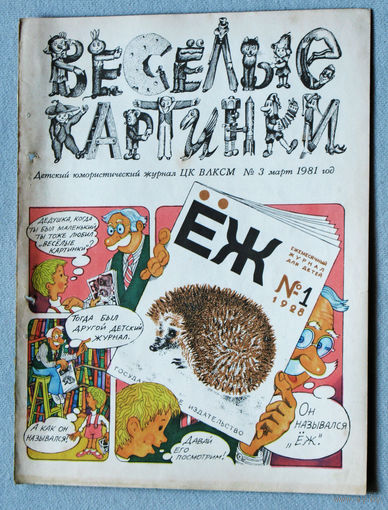 ВЕСЁЛЫЕ
КАРТИНКИ
Детский юмористический журнал ЦК ВЛКСМ № 3 март 1981 год
ДЕДУШКА, КОГДА
ТЫ БЫЛ МАЛЕНЬКИЙ
ТЫ ТОЖЕ ЛЮБИЛ
„ВЕСЁЛЫЕ
КАРТИНКИ"?
ТОГДА БЫЛ
ДРУГОЙ ДЕТСКИЙ
ЖУРНАЛ.
А КАК ОН
НАЗЫВАЛСЯ?
ЁЖ
ЕЖЕМЕСЯЧНЫЙ
ЖУРНАЛ
ДЛЯ ДЕТЕЙ
№1
1928
ГОСУДА
ИЗДАТЕЛЬСТВО
ОН
НАЗЫВАЛСЯ
„ЁЖ".
ДАВАЙ
ЕГО
ПОСМОТРИМ!